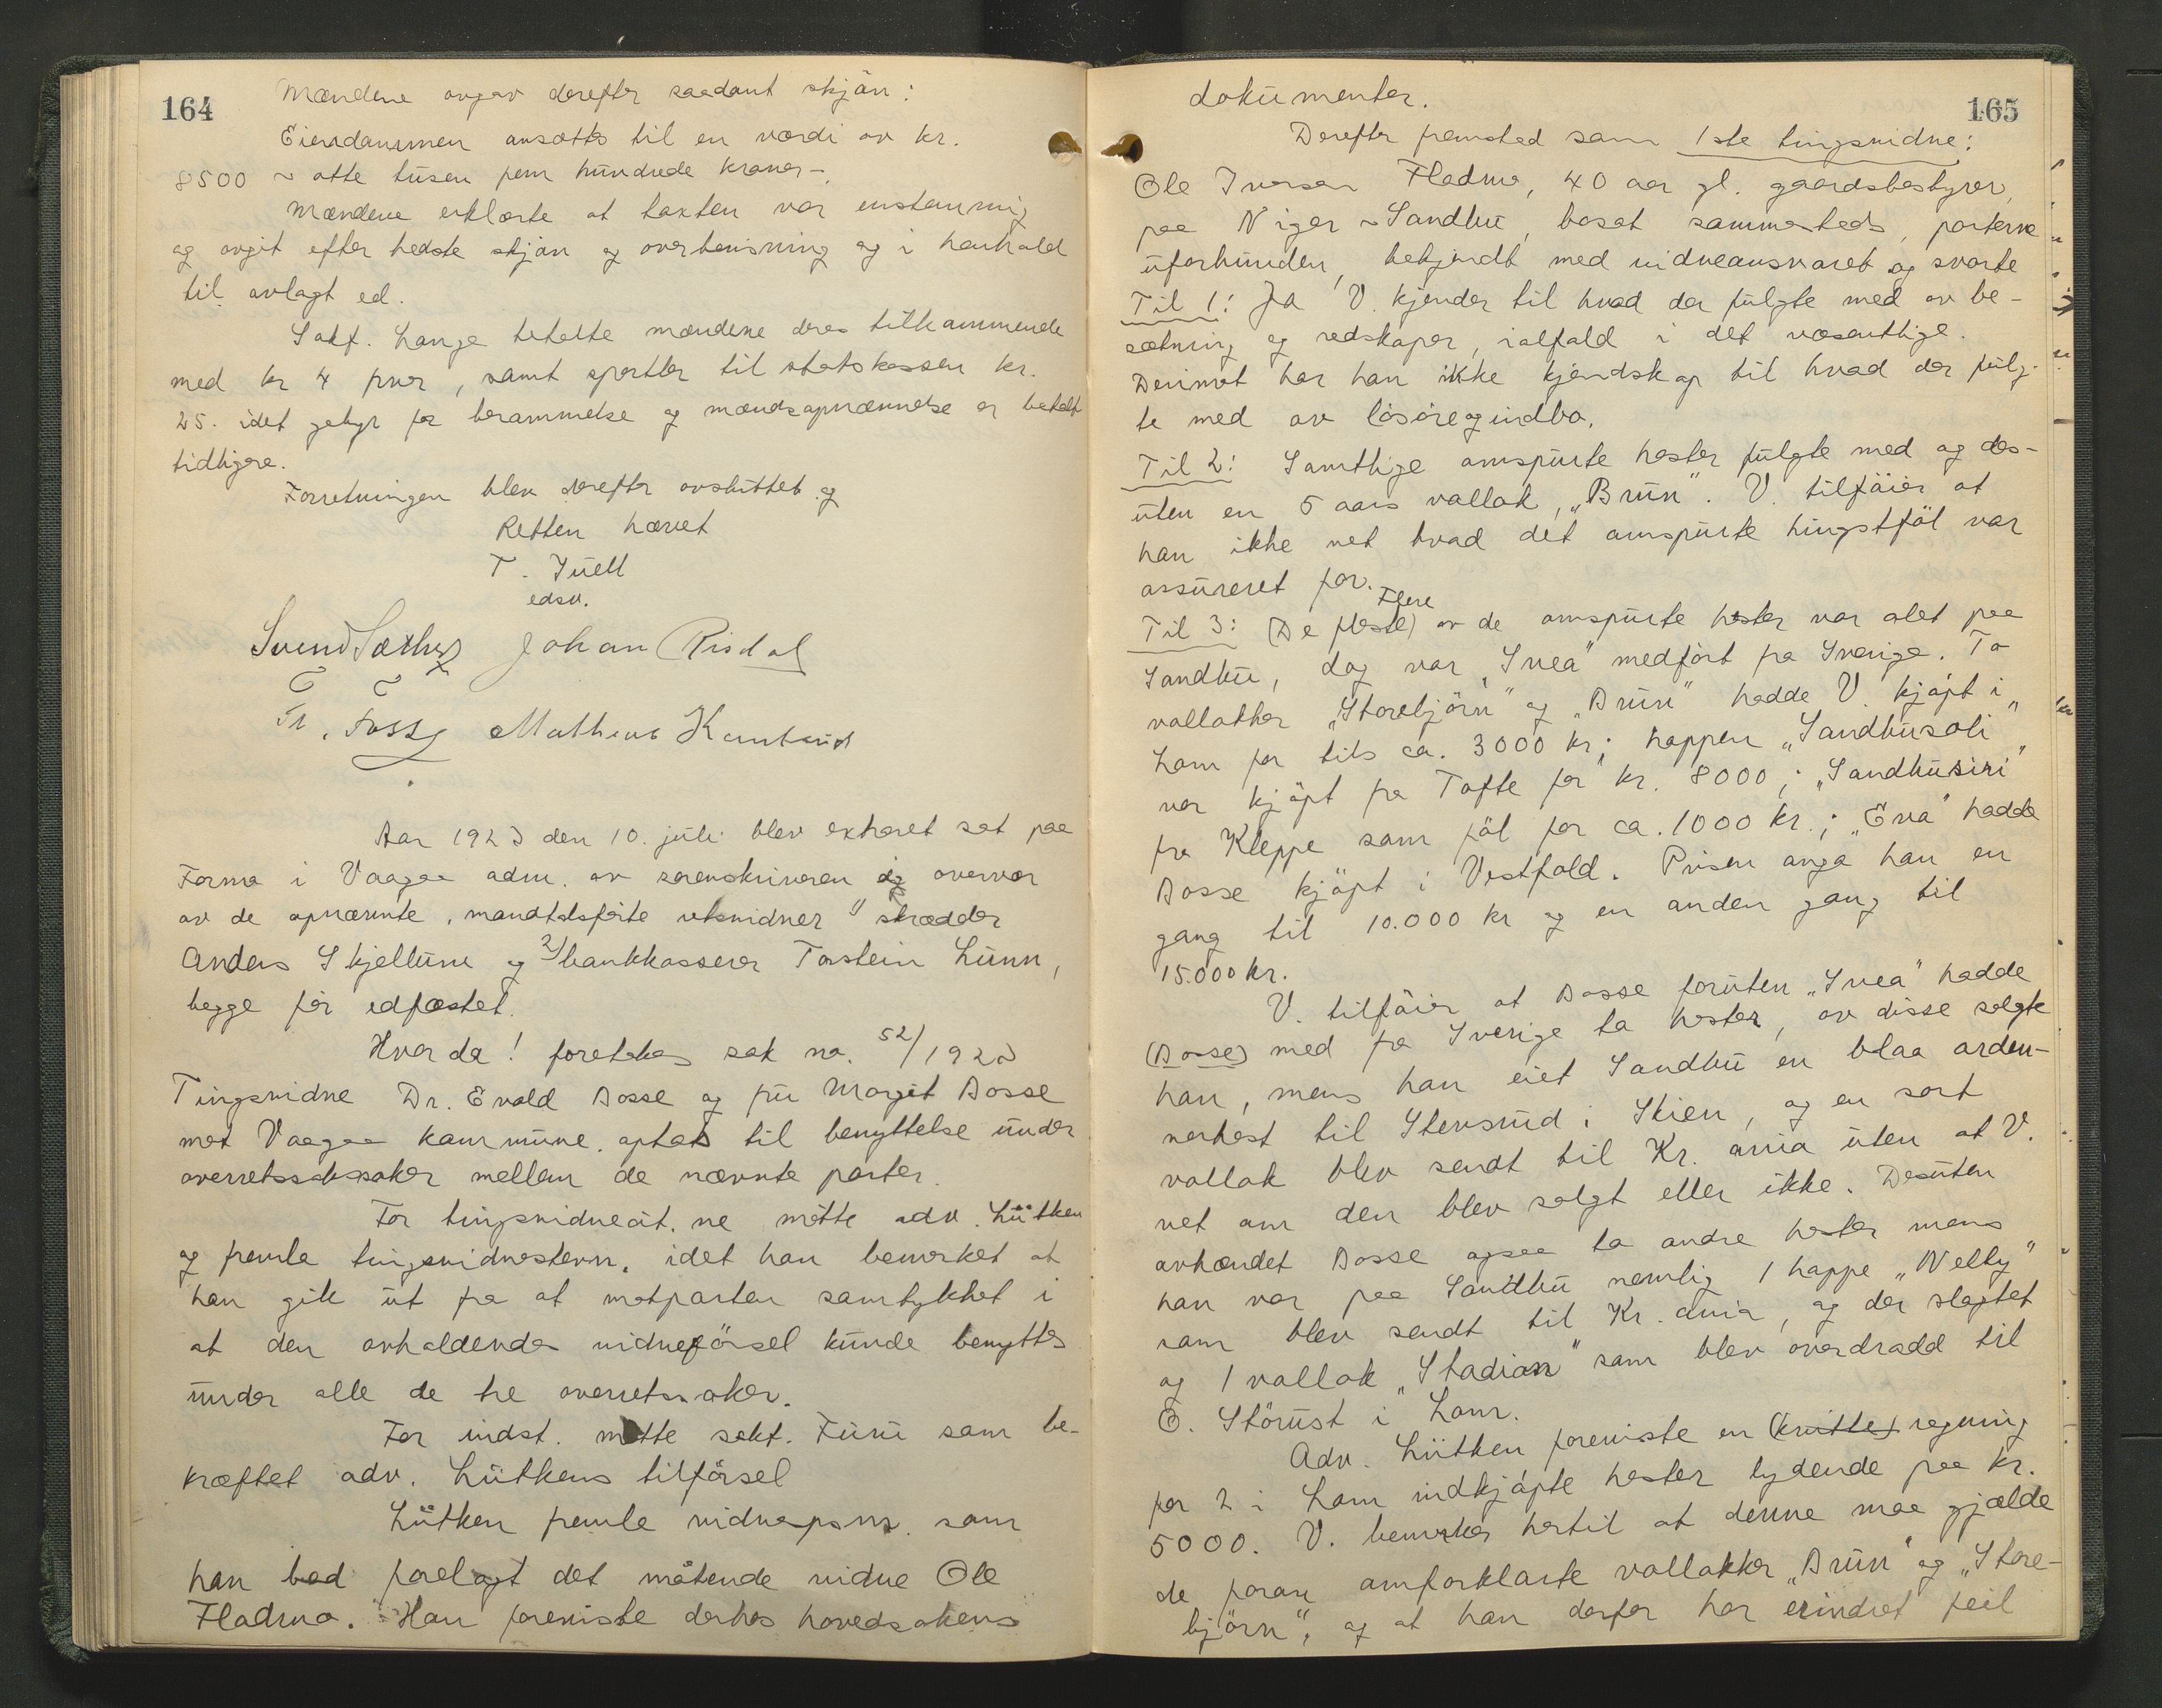 164
Mændene avgav derefter saadant skjön:
Eiendommen ansættes til en værdi av kr.
8500 ~ otte tusen fem hundrede kroner -
Mændene erklærte at taxten var enstemmig
og avgit efter bedste skjön og overbevisning og i henhold
til avlagt ed.
Sakf. Lange betalte mændene deres tilkommende
med kr 4 pver, samt sportler til statskassen kr.
25. idet gebyr for berammelse og mændsopnævnelse er betalt
tidligere.
Forretningen blev derefter avsluttet og
Retten hævet
T. Juell
edsv.
Svend Sæther Johan Risdal
Tr. Foss Matheus Kambäud
Aar 1923 den 10. juli blev extraret sat paa
Formo i Vaagaa adm. av sorenskriveren og overvær
av de opnævnte, mandtalsförte retsvidner 1/ skrædder
Anders Skjellum og 2/ bankkasserer Torstein Lunn,
begge för edfæstet.
Hvorda! foretokes sak no. 52/1923
Tingsvidne Dr. Evald Bosse og fru Margit Bosse
mot Vaagaa kommune, optat til benyttelse under
overretssakssaker mellem de nævnte parter.
For tingsvidnecit.ne mötte adv. Lütken
og fremla tingsvidnestevn. idet han bemerket at
han gik ut fra at motparten samtykket i
at den avholdendes vidneförsel kunde benyttes
under alle de tre overretssaker.
For indst. mötte sakf. Furu som be-
kræftet adv. Lütkens tilförsel
Lütken fremla vidnespsm. som
han bad forelagt det mötende vidne Ole
Fladmo. Han foreviste derhos hovedsakens
165
dokumenter.
Derefter fremsted som 1ste tingsvidne:
Ole Iversen Fladmo, 40 aar gl. gaardsbestyrer,
paa Nigar ~ Sandbu, bosat sammesteds, parterne
uforbunden, bekjendt med vidneansvaret og svarte
Til 1: Ja V. kjender til hvad der fulgte med av be-
sætning og redskaper, ialfald i det væsentlige.
Derimot har han ikke kjendskap til hvad der fulg-
te med av lösöre og indbo.
Til 2: Samtlige omspurte hester fulgte med og des-
uten en 5 aars vallak, "Brun". V. tilföier at
han ikke vet hvad det omspurte hingstföl var
assureret for.
Flere
Til 3: (De fleste) av de omspurte hester var alet paa
Sandbu, dog var "Svea" medfört fra Sverige. To
vallakker "Storebjörn" og "Brun" hadde V. kjöpt i
Lom for tils ca. 3000 kr; hoppen "Sandbusoli"
var kjöpt fra Tofte for kr. 8000; "Sandbusiri"
fra Kleppe som föl for ca. 1000 kr.; "Eva" hadde
Bosse kjöpt i Vestfold. Prisen anga han en
gang til 10.000 kr og en anden gang til
15.000 kr.
V. tilföier at Bosse foruten "Svea" hadde
(Bosse) med fra Sverige to hester, av disse solgte
han, mens han eiet Sandbu en blaa arden-
nerhest til Stensrud i Skien, og en sort
vallak blev sendt til Kr.ania uten at V.
vet om den blev solgt eller ikke. Desuten
avhændet Bosse ogsaa to andre hester mens
han var paa Sandbu nemlig 1 hoppe "Nelly"
som blev sendt til Kr.ania, og der slagtet
og 1 vallak "Stadion" som blev overdradd til
O. Störust i Lom.
Adv. Lütken foreviste en (kvitte) regning
for 2 i Lom indkjöpte hester lydende paa kr.
5000. V. bemerker hertil at denne maa gjælde
de foran omforklarte vallakker "Brun" og "Store-
björn", og at han derfor har erindret feil